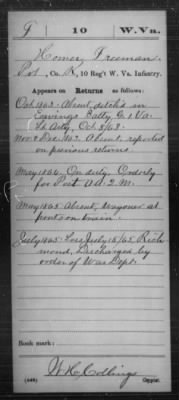 F 10 W.Va.
Homer Freeman
Pvt, Co. K, 10 Reg't W. Va. Infantry.
Appears on Returns as follows:
Oct 1863. Absent detch'd in
Ewings Batty G. 1 Va.
Lt Arty, Oct. 8/63.
Nov & Dec. 1863 Absent reported
on previous returns
May 1864 On duty. Orderly
for Post A.Q.M.
May 1865 Absent, Wagoner at
on train.
July 1865 Loss July 15/65 Rich
mond, Discharged by
order of War Dept.
Book mark:
W.H. Collings
(546) Copyist.